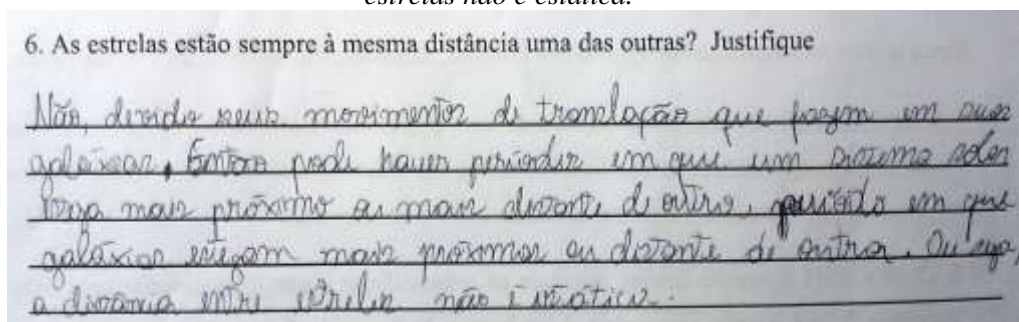 estrelas não é estática.
6. As estrelas estão sempre à mesma distância uma das outras? Justifique
Não, devido seus movimentos de translação que fazem em suas
galáxias, Então pode haver períodos em que um sistema solar
seja mais próximo ou mais distante de outro, período em que
galáxias estejam mais próximas ou distante de outras. Ou seja,
a distância entre estrelas não é estática.